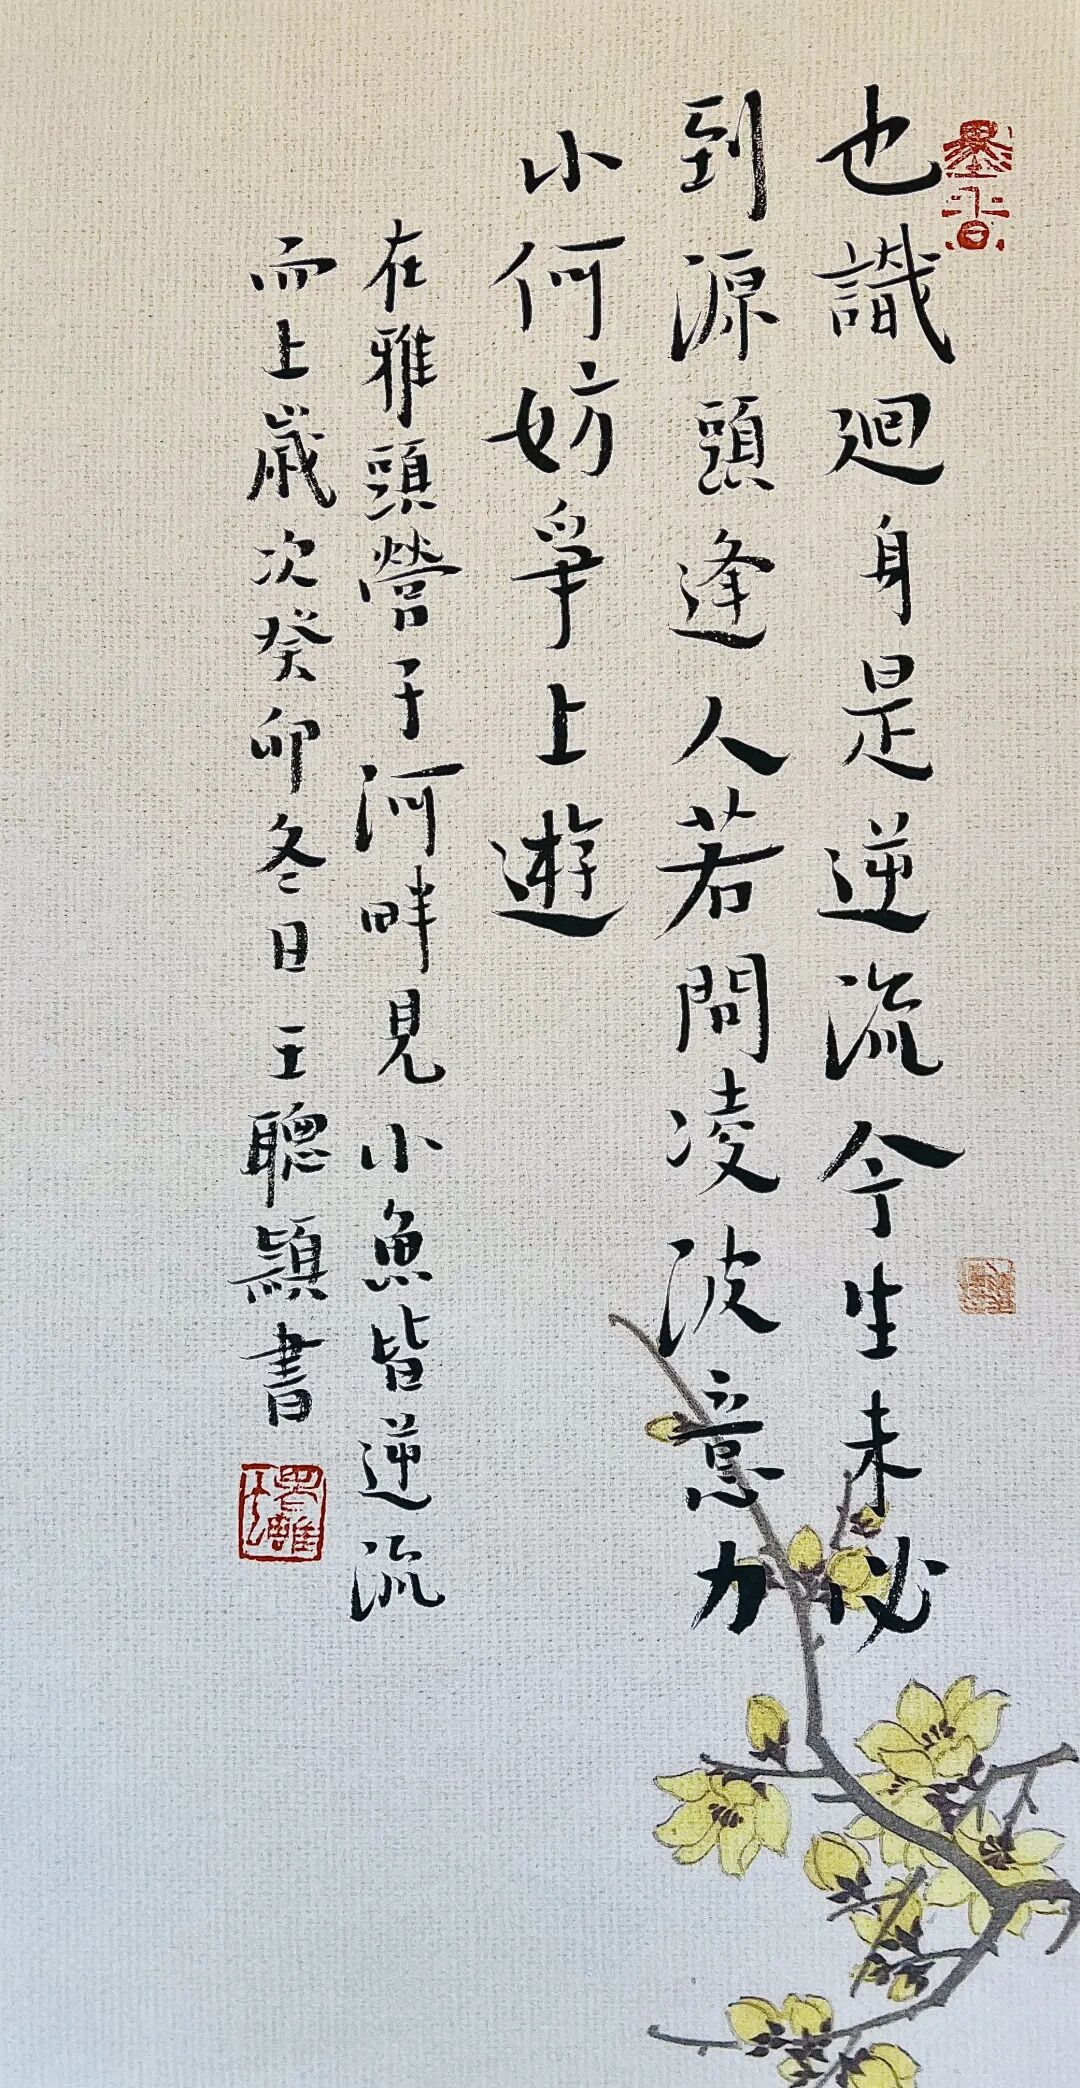 也識迴身是逆流今生未必
到源頭逢人若問凌波意力
小何妨爭上遊
在雅頭營子河畔見小魚皆逆流
而上歲次癸卯冬日王聰穎書
墨香